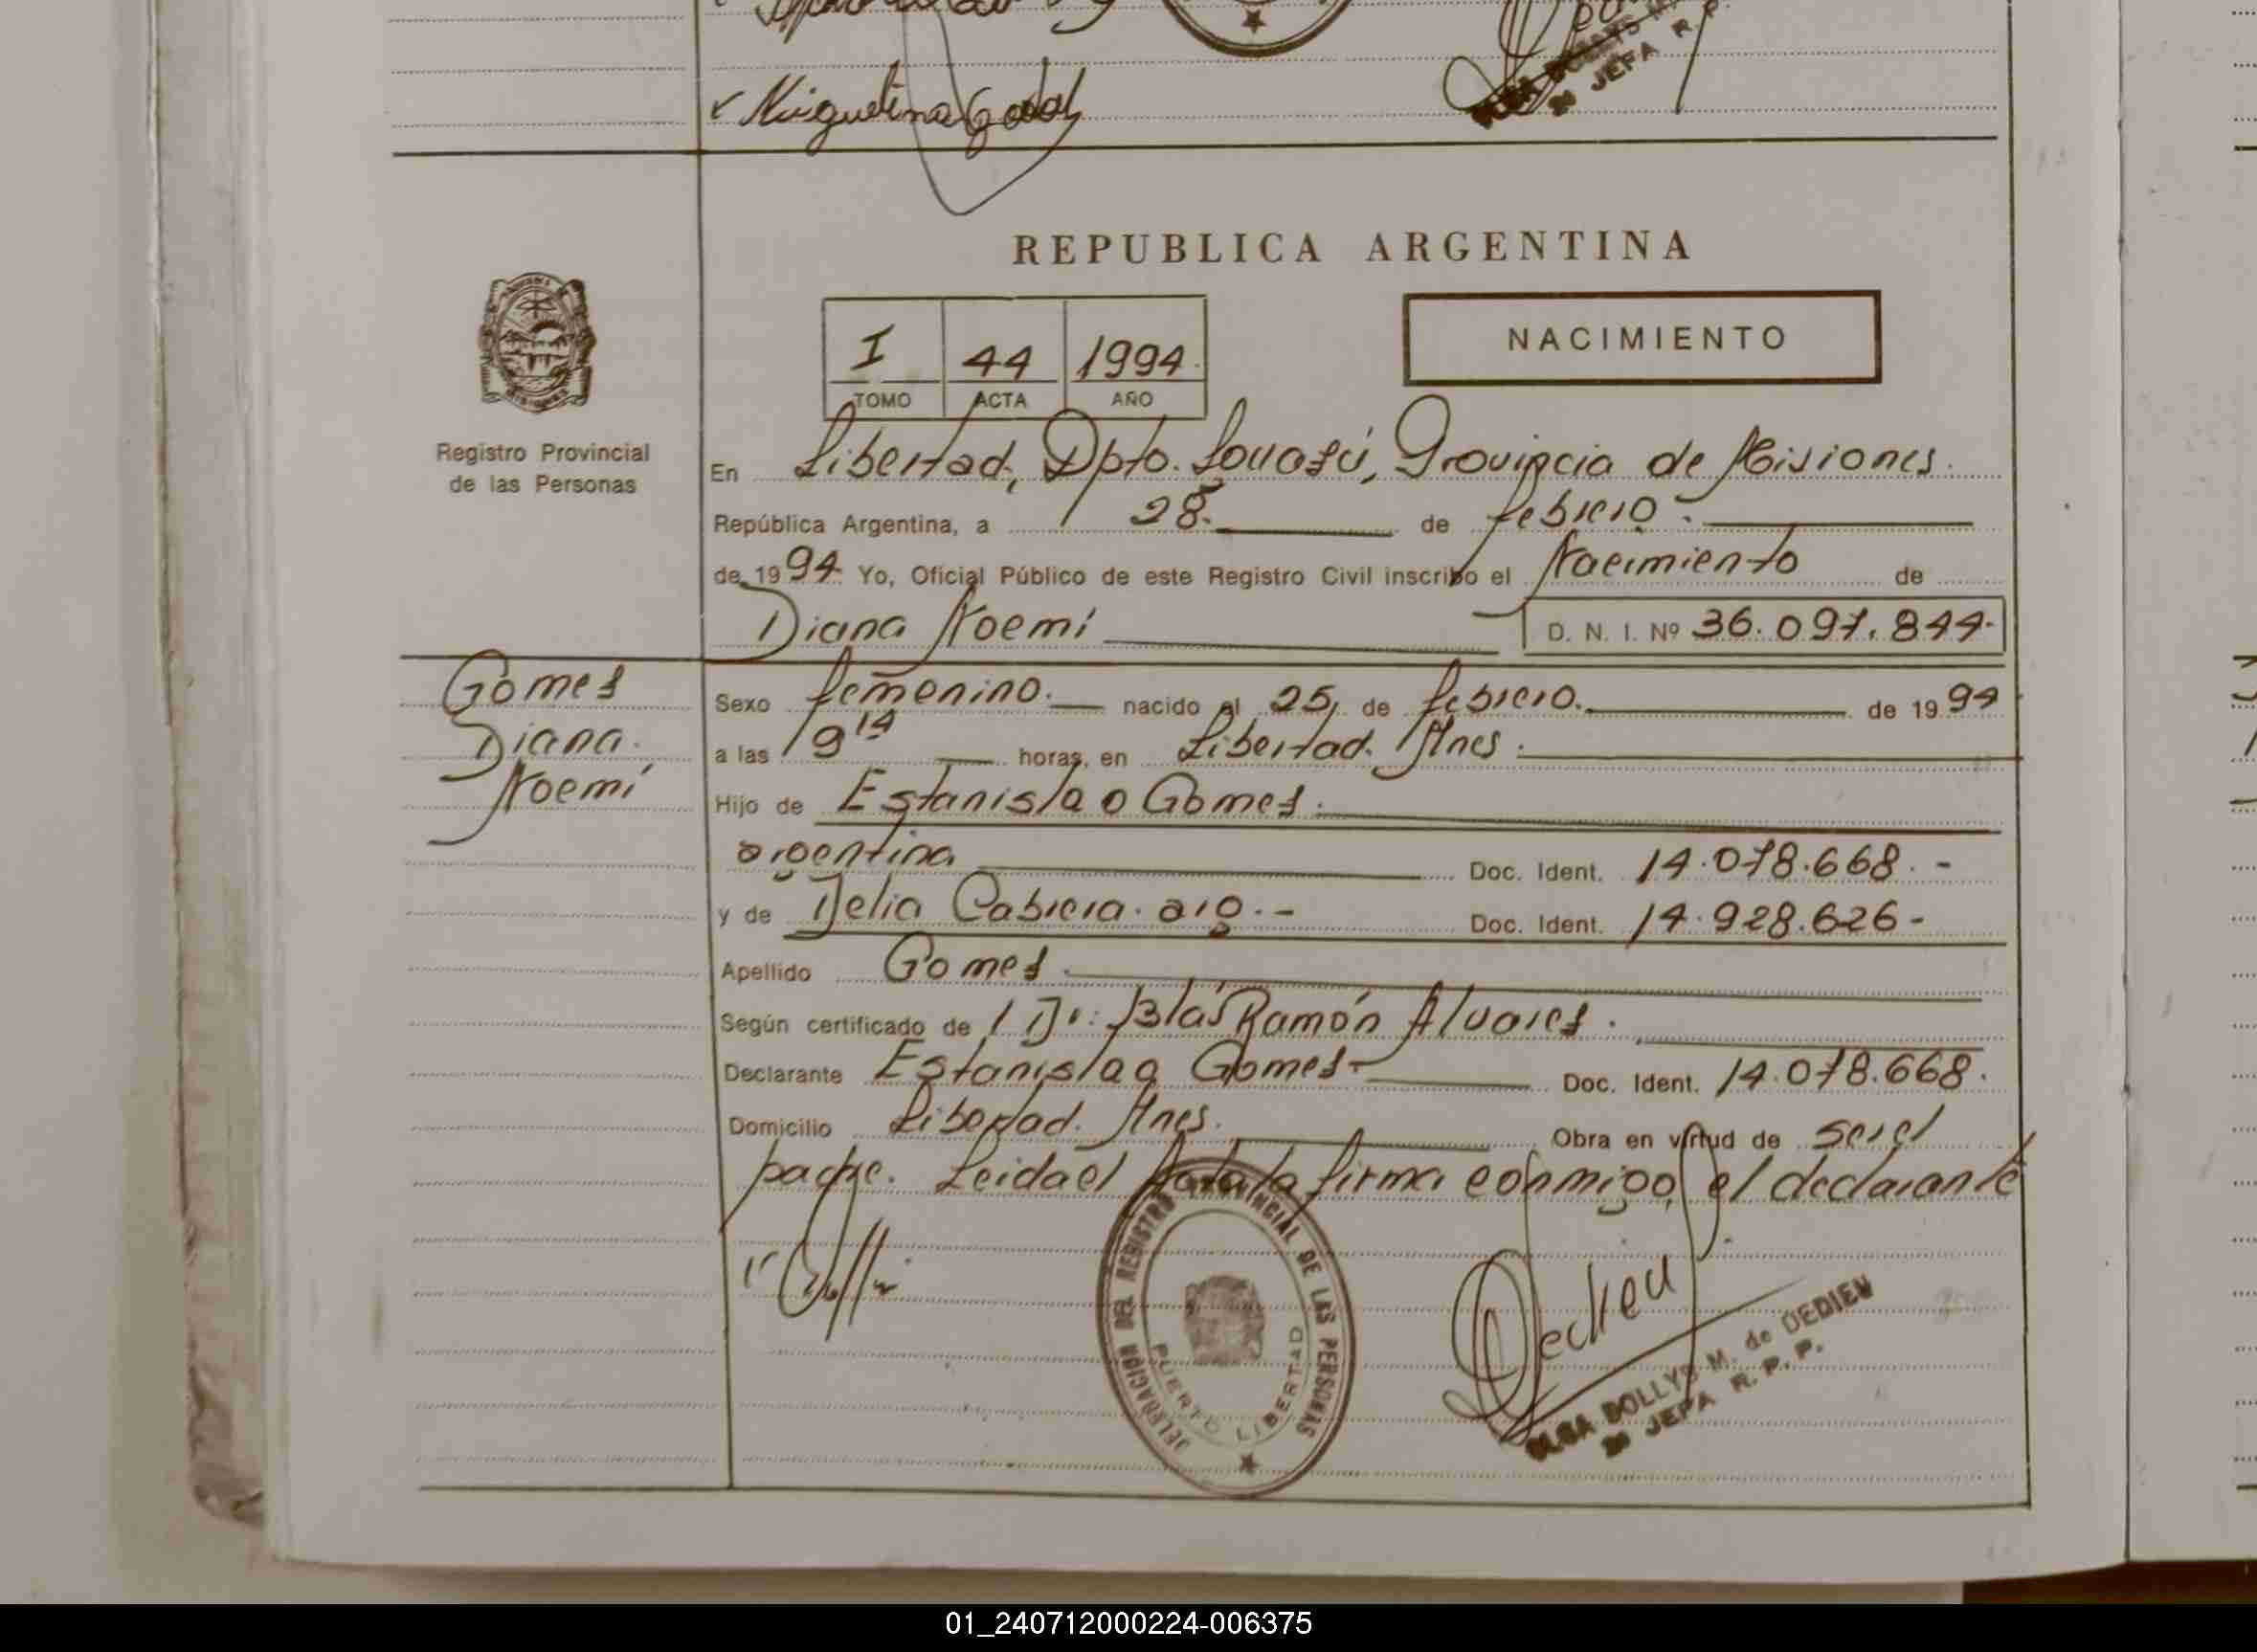 Miguelina
JEFA R. P.
REPUBLICA ARGENTINA
NACIMIENTO
I 44 1994
TOMO ACTA AÑO
Registro Provincial
de las Personas
En Libertad, Dpto. Iguazú, Provincia de Misiones.
República Argentina, a 28. de febrero.
de 1994. Yo, Oficial Público de este Registro Civil inscribo el Nacimiento de
Diana Noemí D. N. I. Nº 36.097.844-
Gomez
Diana
Noemí
Sexo femenino. nacido el 25, de febrero. de 1994
a las 19 14 horas, en Libertad. Mnes.
Hijo de Estanislao Gomez.
argentina Doc. Ident. 14.078.668.-
y de Delia Cabrera. arg.- Doc. Ident. 14.928.626-
Apellido Gomez.
Según certificado de 1 Dr: Blás Ramón Alvarez.
Declarante Estanislao Gomez- Doc. Ident. 14.078.668.
Domicilio Libertad. Mnes. Obra en virtud de ser el
padre. Leida el Acta la firma conmigo, el declarante
DELEGACION DEL REGISTRO PROVINCIAL DE LAS PERSONAS
PUERTO LIBERTAD
Dedieu
OLGA DOLLYS M. de DEDIEU
JEFA R. P. P.
01_240712000224-006375